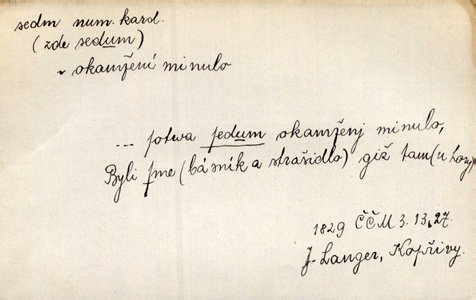 sedm num. kard.
(zde sedum)
~ okamžení minulo
... sotwa sedum okamženj minulo,
Byli sme (básník a strašidlo) giž tam (u hory)
1829 ČČM 3. 13, 27.
J. Langer, Kopřivy.